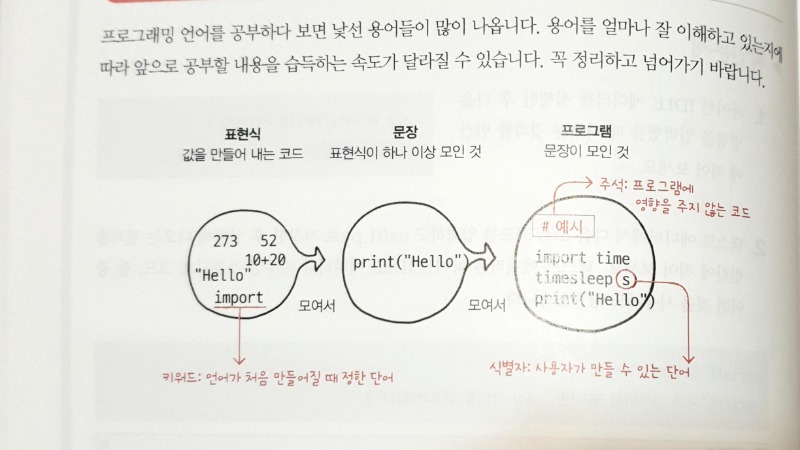 프로그래밍 언어를 공부하다 보면 낯선 용어들이 많이 나옵니다. 용어를 얼마나 잘 이해하고 있는지에
따라 앞으로 공부할 내용을 습득하는 속도가 달라질 수 있습니다. 꼭 정리하고 넘어가기 바랍니다.
표현식
값을 만들어 내는 코드
문장
표현식이 하나 이상 모인 것
프로그램
문장이 모인 것
주석: 프로그램에
영향을 주지 않는 코드
273 52
10+20
"Hello"
import
모여서
print("Hello")
모여서
# 예시
import time
timesleep s
print("Hello")
키워드: 언어가 처음 만들어질 때 정한 단어
식별자: 사용자가 만들 수 있는 단어